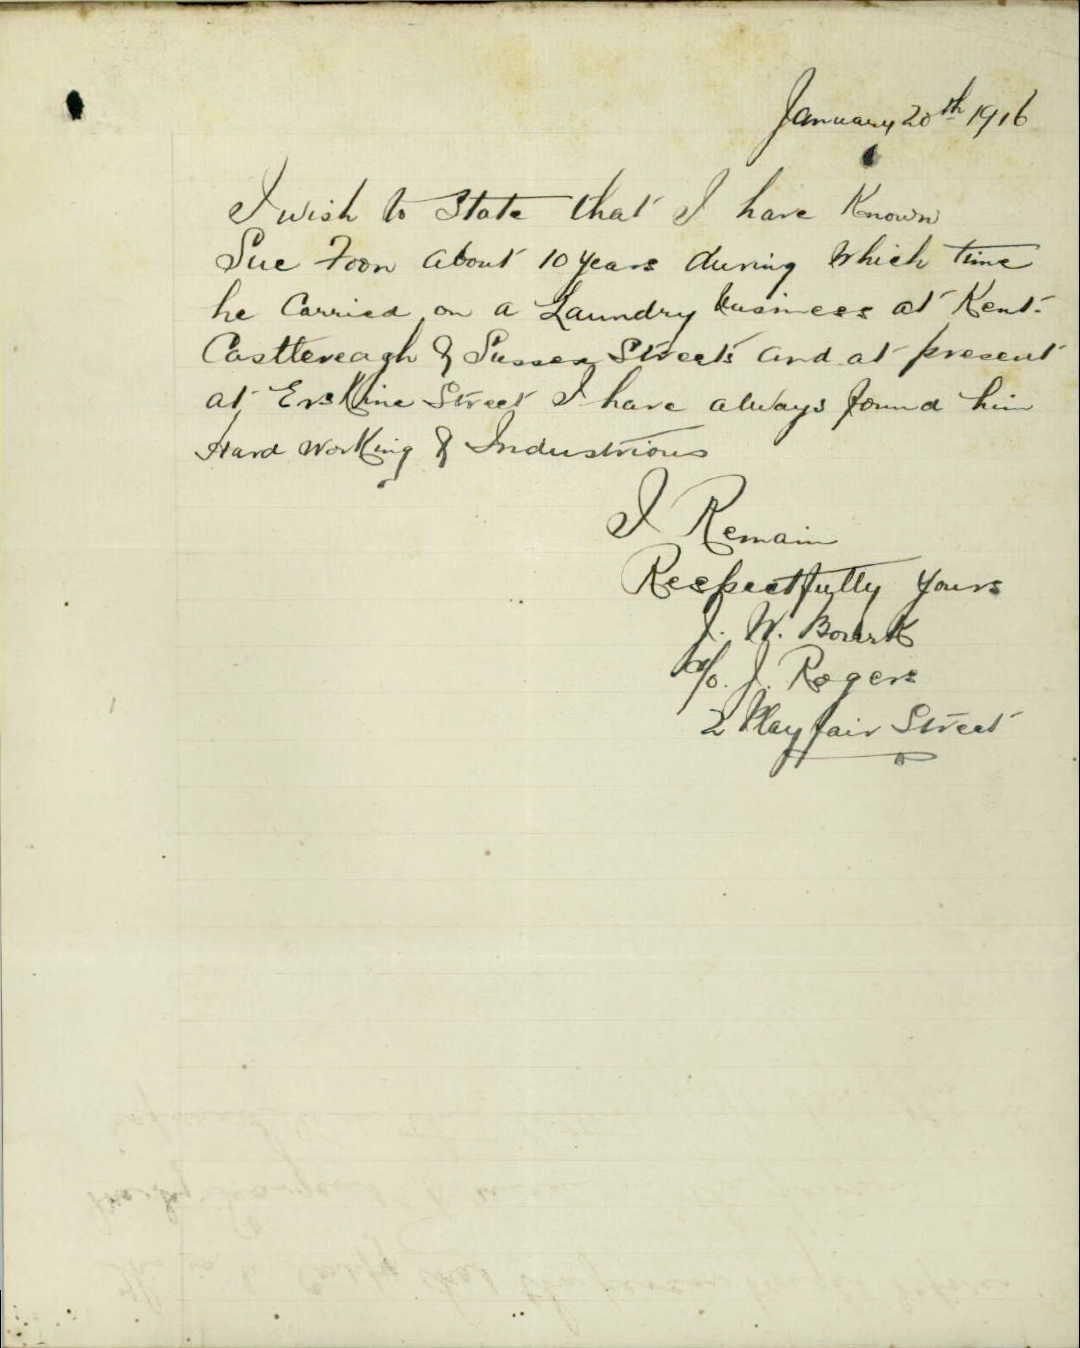 January 20th 1916
I wish to State that I have Known
Sue Foon about 10 years during Which time
he Carried on a Laundry business at Kent.
Castlereagh & Sussex Streets and at present
at Erskine Street I have always found him
Hard Working & Industrious
I Remain
Respectfully Yours
J. W. Bourk
c/o. J. Rogers
2 Mayfair Street